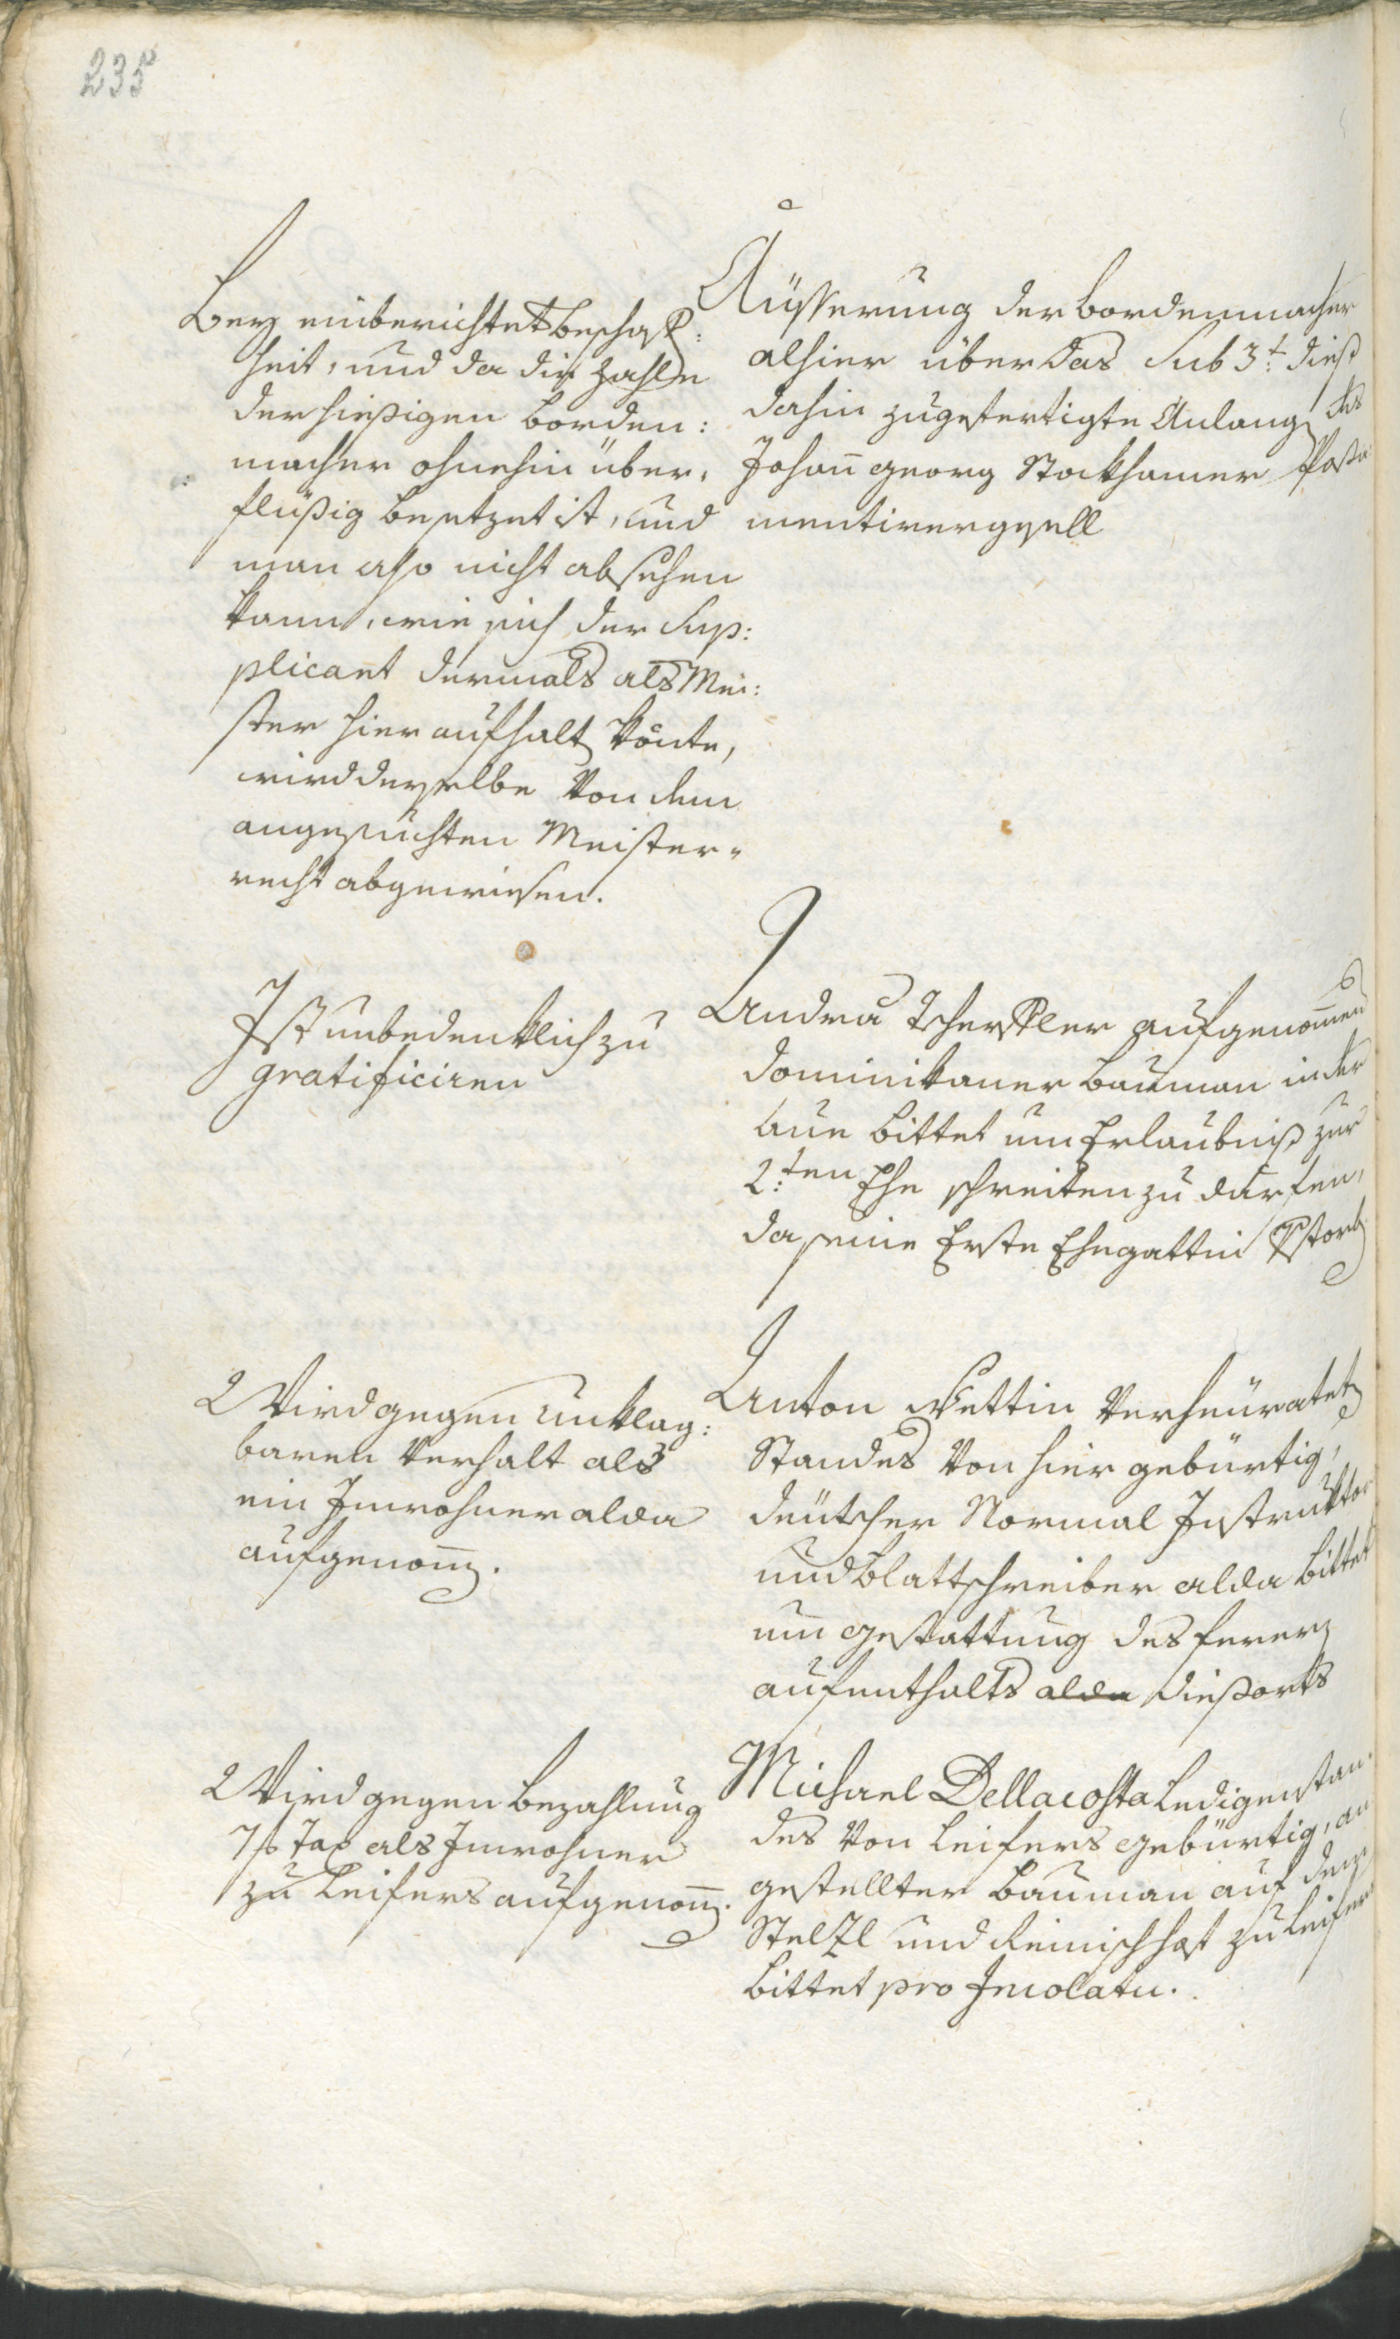 235
Bey einberichteter Beschaf:
heit, und da die Zahle
der hießigen Borden:
macher ohnehin über:
flüßig besetzet ist, und
man also nicht absehen
kann, wie sich der Sup:
plicant dermals als Mei:
ster hier aufhalt könte,
wird derselbe von dem
angesuchten Meister=
recht abgewiesen.
Äüsserung der Bordenmacher
alhier über das sub 3t: dieß
dahin zugefertigte Anlang des
Johan̄ Georg Stockhamer Posa
mentirergsell
Ist unbedenklich zu
gratificiren
Andrä aufgenom̄en
Dominikaner Bauman in der
Aue bittet um Erlaubniß zur
2:ten Ehe schreiten zu därfen,
da seine Erste Ehegattin
Wird gegen unklag:
baren Verhalt als
ein Innwohner alda
aufgenom̄.
Anton Verheüratet
Standes von hier gebürtig,
deütscher Normal Instruktor
und Blattschreiber alda bittet
um Gestattung des ferern
aufenthalts alda dießorts
Wird gegen Bezahlung
7 f Tax als Innwohner
zu Leifers aufgenom̄.
Michael Dellacosta Ledigenstan:
des von Leifers gebürtig, an
gestellter Bauman auf dem
Stelzl und Reinischhof zu Leifers
bittet pro Incolatu.